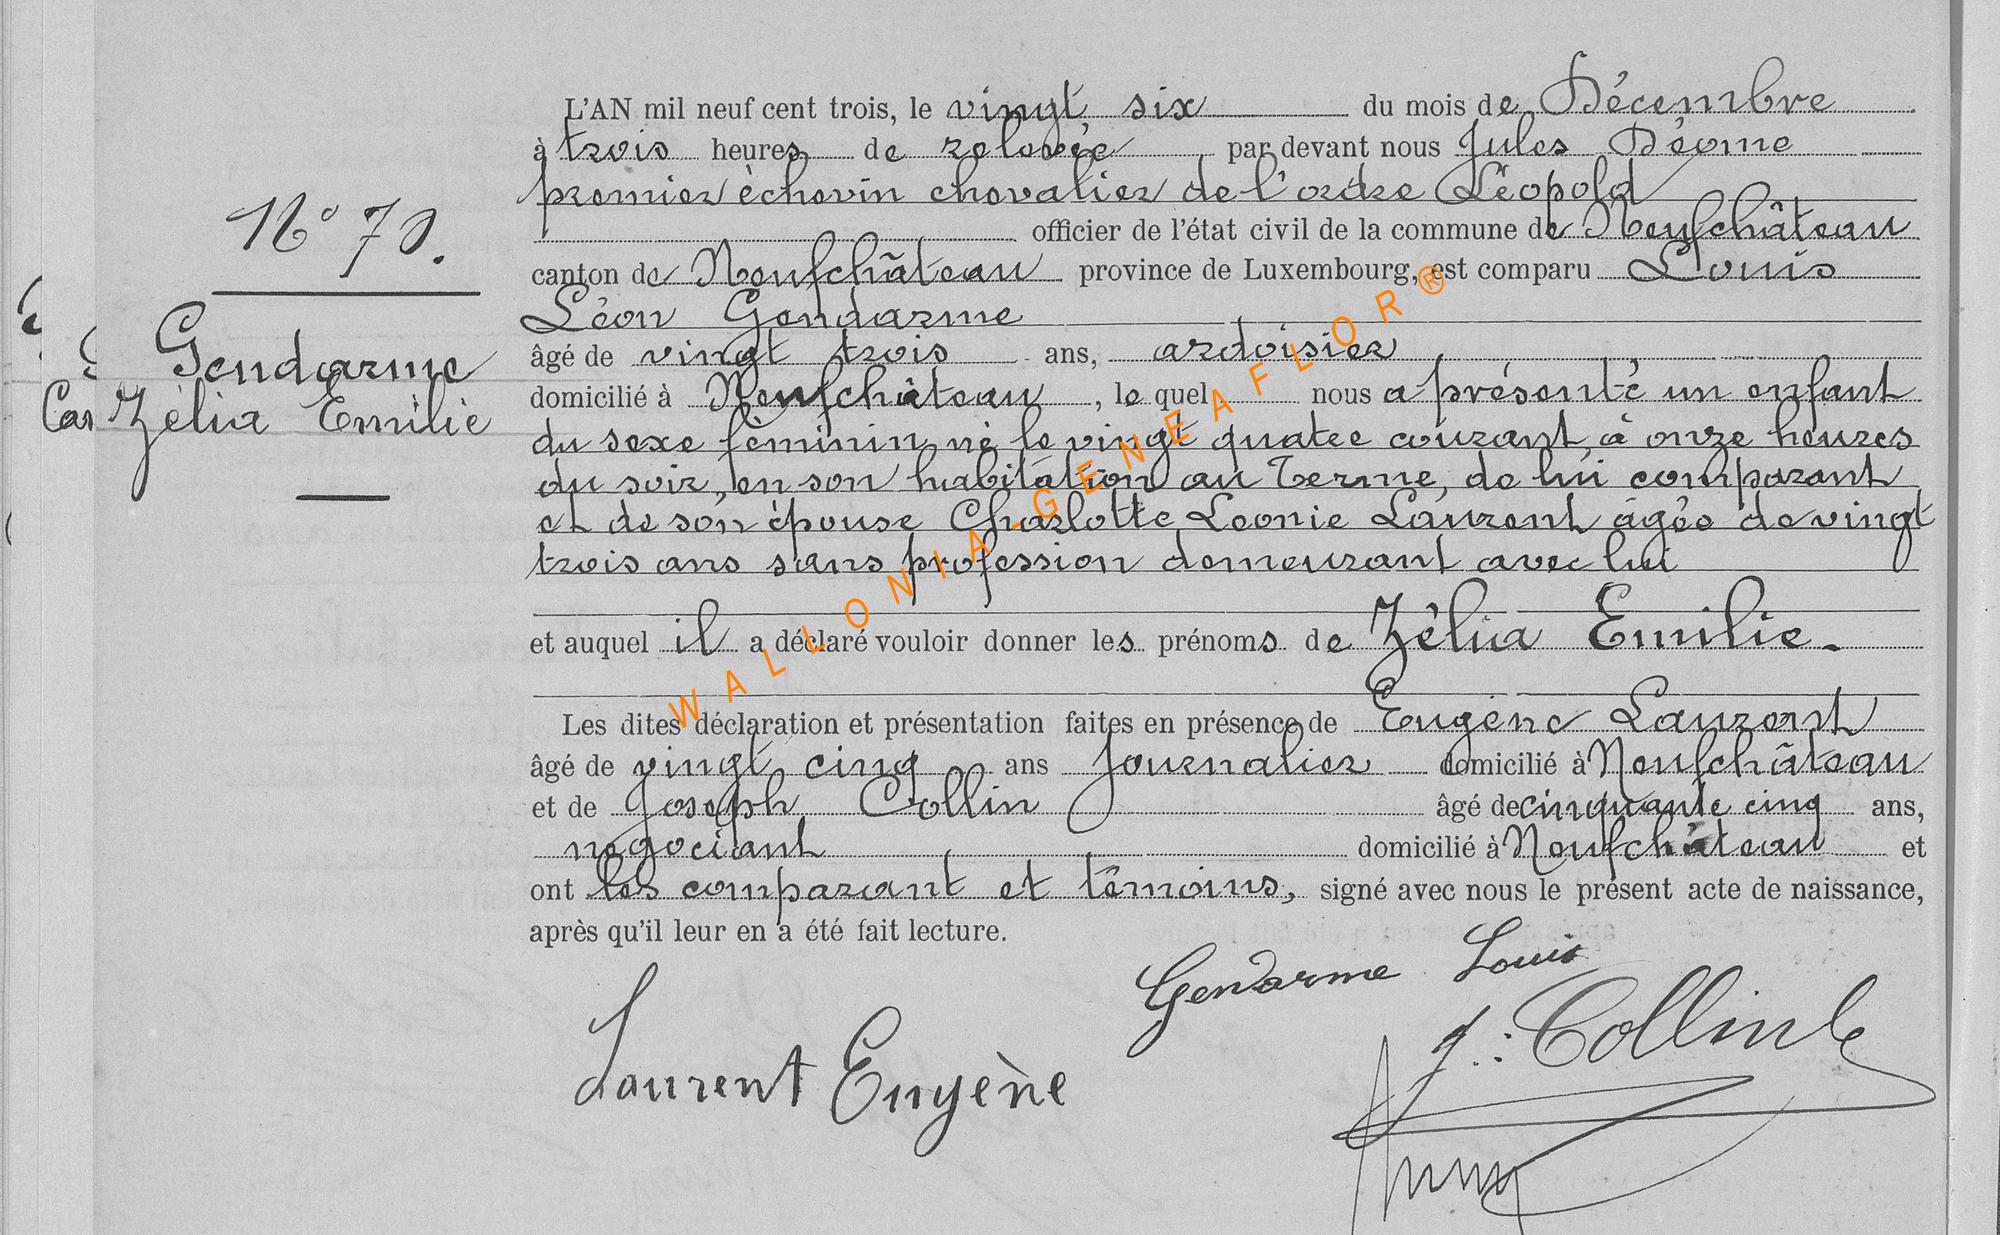 N° 70.
Gendarme
Zélia Emilie
L'AN mil neuf cent trois, le vingt six du mois de Décembre
à trois heures de relevée par devant nous Jules
premier échevin chevalier de l'ordre Léopold
officier de l'état civil de la commune de Neufchâteau
canton de Neufchâteau province de Luxembourg, est comparu Louis
Léon Gendarme
âgé de vingt trois ans, ardoisier
domicilié à Neufchâteau, le quel nous a présenté un enfant
du sexe féminin, né le vingt quatre courant, à onze heures
du soir, en son habitation au Terme, de lui comparant
et de son épouse Charlotte Leonie Laurent âgée de vingt
trois ans sans profession demeurant avec lui
et auquel il a déclaré vouloir donner les prénoms de Zélia Emilie.
Les dites déclaration et présentation faites en présence de Eugène Laurent
âgé de vingt cinq ans journalier domicilié à Neufchâteau
et de Joseph Collin âgé de cinquante cinq ans,
négociant domicilié à Neufchâteau et
ont les comparant et témoins, signé avec nous le présent acte de naissance,
après qu'il leur en a été fait lecture.
Gendarme Louis
Laurent Eugène
J. Collin
WALLONIA-GENEAFLOR®